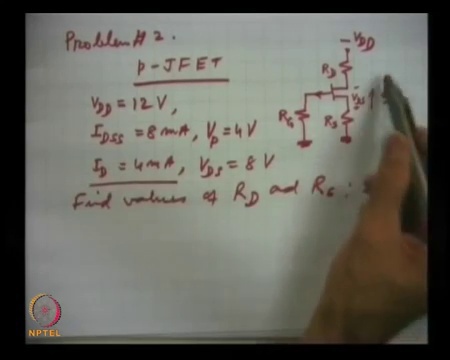 Problem # 2.
p-JFET
V_DD = 12 V,
I_DSS = 8 mA, V_p = 4 V
I_D = 4 mA, V_DS = 8 V
Find values of R_D ad R_S :
- V_DD
R_D
V_DS
R_G
R_S
NPTEL